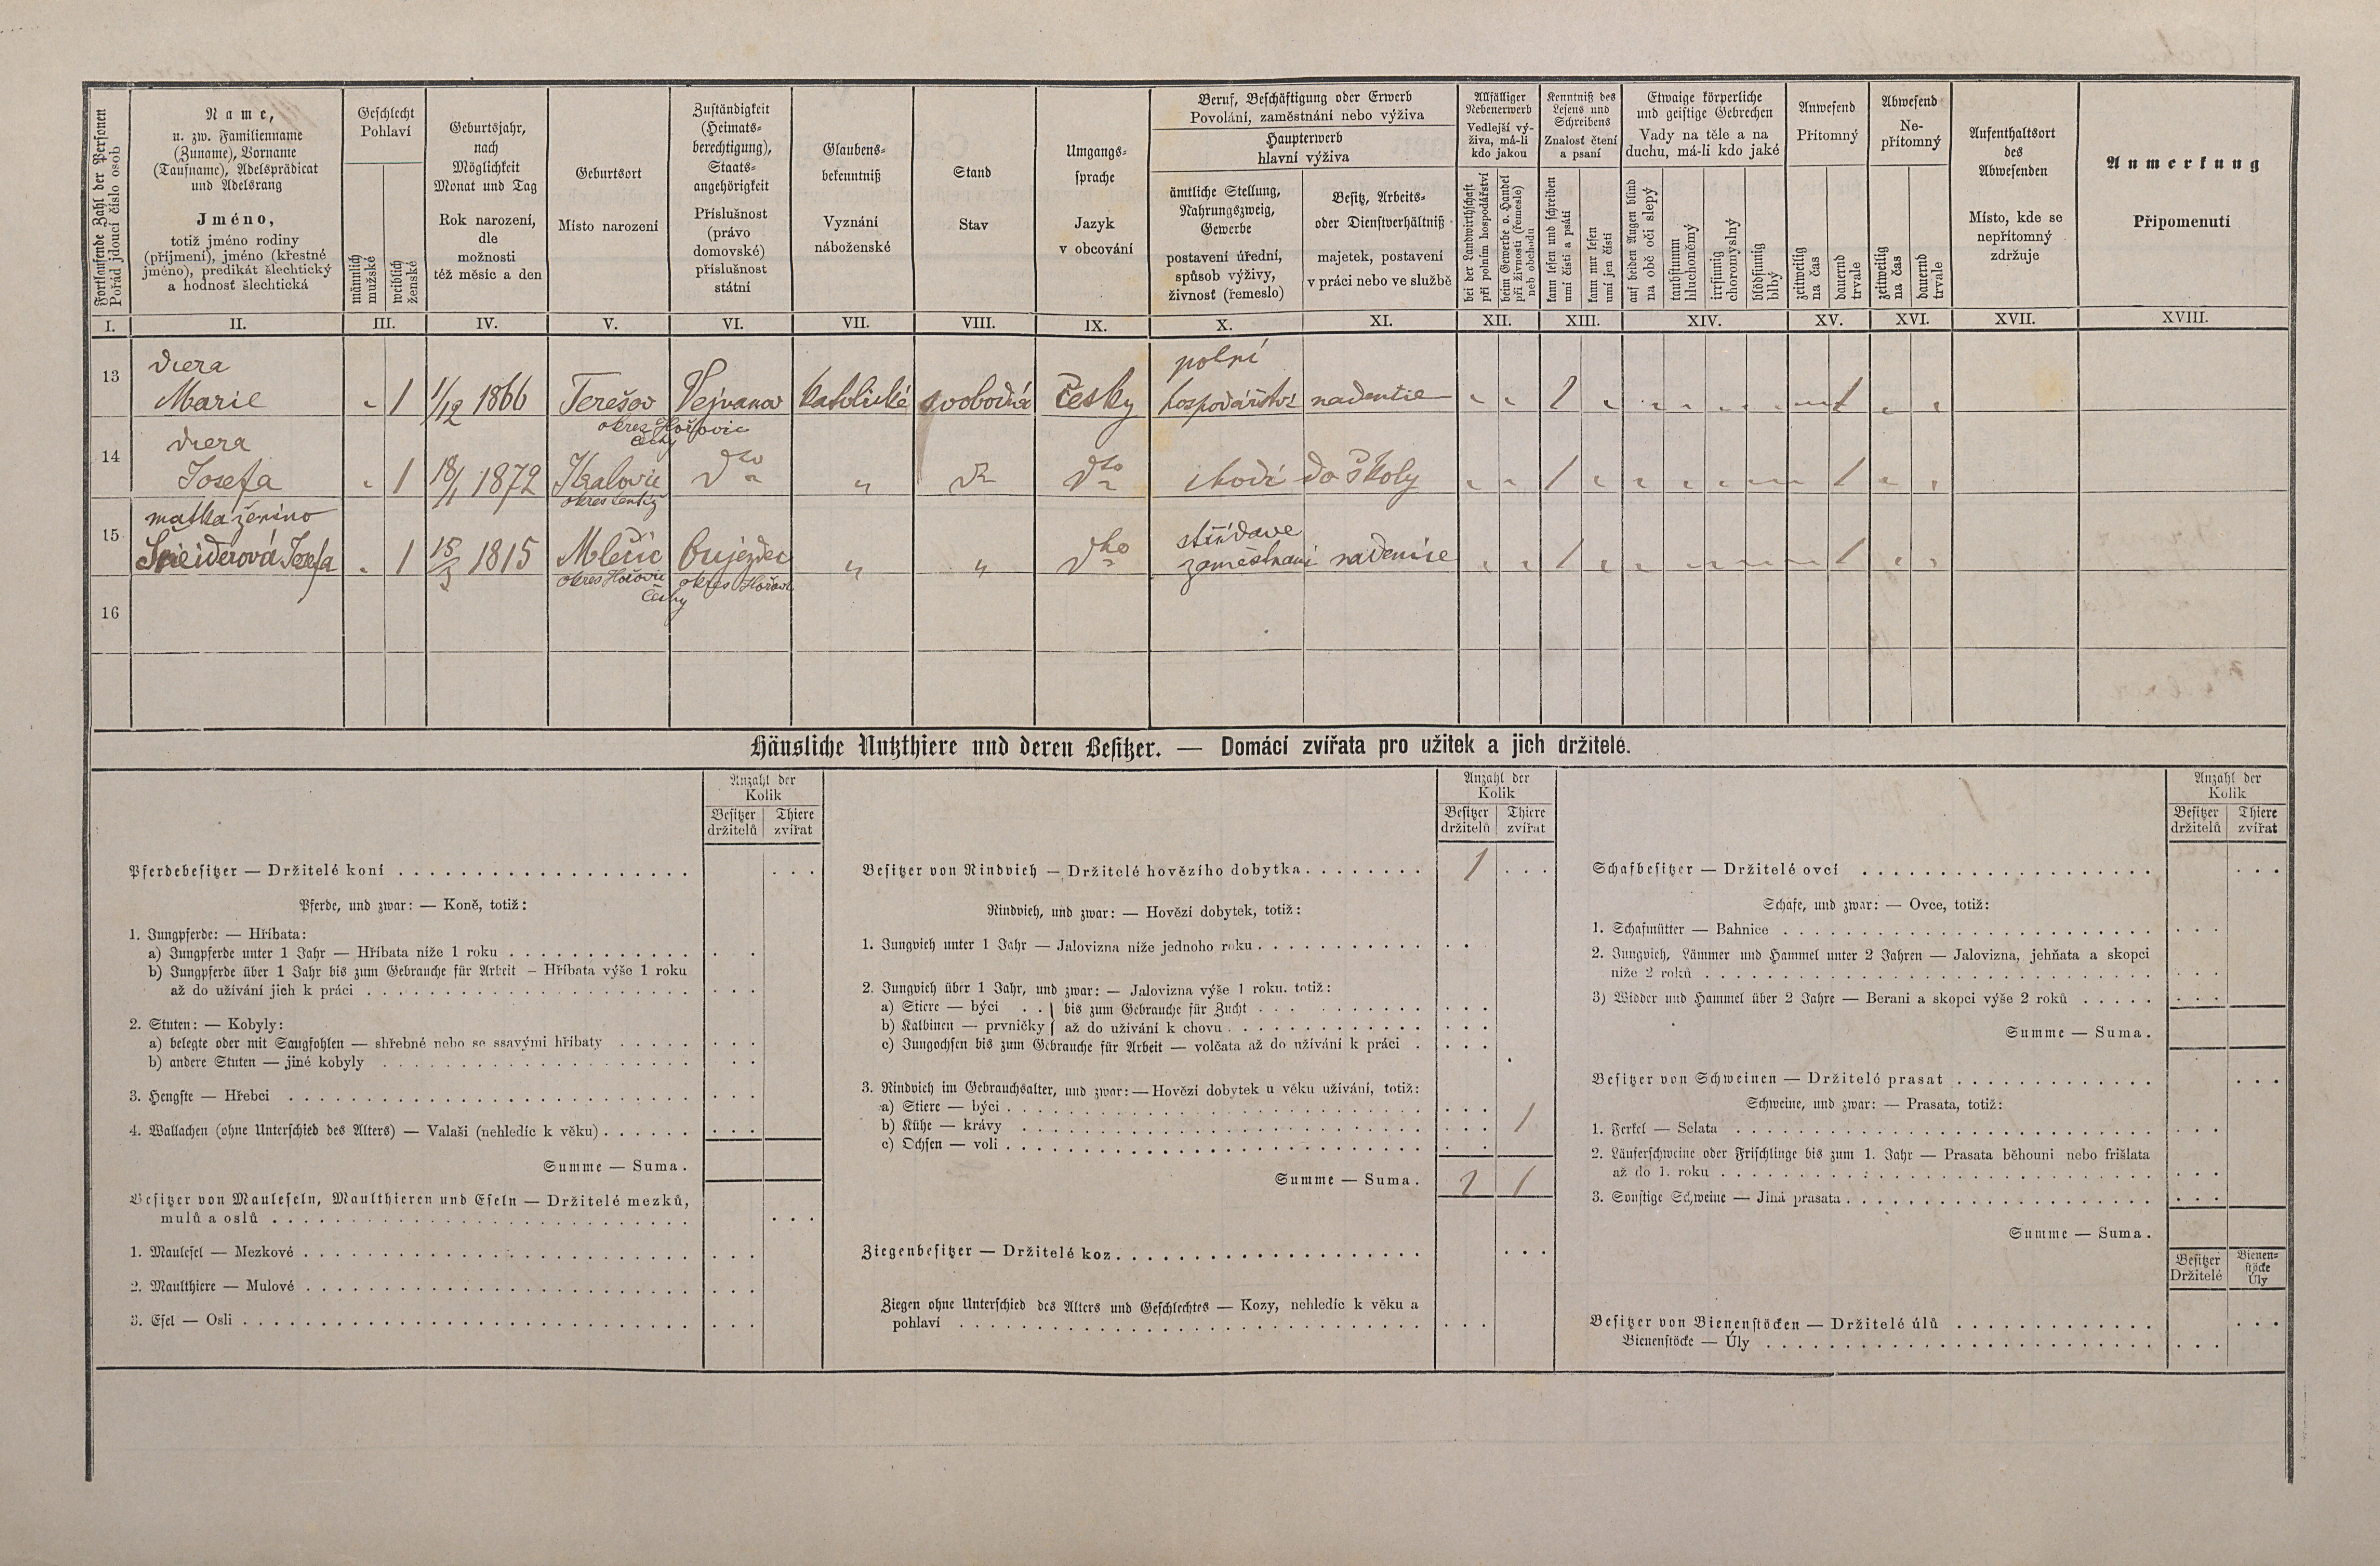 Fortlaufende Zahl der Personen
Pořád jdoucí číslo osob
Name,
u. zw. Familienname
(Zuname), Vorname
(Taufname), Adelsprädicat
und Adelsrang
Jméno,
totiž jméno rodiny
(příjmení), jméno (křestné
jméno), predikát šlechtický
a hodnosť šlechtická
Geschlecht
Pohlaví
männlich
mužské
weiblich
ženské
Geburtsjahr,
nach
Möglichkeit
Monat und Tag
Rok narození,
dle
možnosti
též měsíc a den
Geburtsort
Místo narození
Zuständigkeit
(Heimats-
berechtigung),
Staats-
angehörigkeit
Příslušnost
(právo
domovské)
příslušnost
státní
Glaubens-
bekenntniß
Vyznání
náboženské
Stand
Stav
Umgangs-
sprache
Jazyk
v obcování
Beruf, Beschäftigung oder Erwerb
Povolání, zaměstnání nebo výživa
Haupterwerb
hlavní výživa
ämtliche Stellung,
Nahrungszweig,
Gewerbe
postavení úřední,
spůsob výživy,
živnosť (řemeslo)
Besitz, Arbeits-
oder Dienstverhältniß
majetek, postavení
v práci nebo ve službě
Allfälliger
Nebenerwerb
Vedlejší vý-
živa, má-li
kdo jakou
bei der Landwirthschaft
při polním hospodářství
beim Gewerbe o. Handel
při živnosti (řemesle)
neb obchodu
Kenntniß des
Lesens und
Schreibens
Znalosť čtení
a psaní
kann lesen und schreiben
umí čísti a psáti
kann nur lesen
umí jen čísti
Etwaige körperliche
und geistige Gebrechen
Vady na těle a na
duchu, má-li kdo jaké
auf beiden Augen blind
na obě oči slepý
taubstumm
hluchoněmý
irrsinnig
choromyslný
blödsinnig
blbý
Anwesend
Přítomný
zeitweilig
na čas
dauernd
trvale
Abwesend
Ne-
přítomný
zeitweilig
na čas
dauernd
trvale
Aufenthaltsort
des
Abwesenden
Místo, kde se
nepřítomný
zdržuje
Anmerkung
Připomenutí
I. II. III. IV. V. VI. VII. VIII. IX. X. XI. XII. XIII. XIV. XV. XVI. XVII. XVIII.
13
dcera
Marie 1 1/12 1866 Terešov Vejvanov katolické svobodná česky
polní
hospodářství nadenice 1 1
okres Hořovic
Čechy
14
dcera
Josefa 1 18/1 1872 Kralovic dto " dto dto chodí do školy 1 1
15
matka ženino
Šneiderová Josefa 1 15/3 1815 Mlečic Oujezdec " " dto
střídavé
zaměstnaní nadenice 1 1
okres Hořovic okres Hořovic
Čechy
16
Häusliche Nutzthiere und deren Besitzer. — Domácí zvířata pro užitek a jich držitelé.
Anzahl der
Kolik
Besitzer
držitelů
Thiere
zvířat
Pferdebesitzer — Držitelé koní
Pferde, und zwar: — Koně, totiž:
1. Jungpferde: — Hříbata:
a) Jungpferde unter 1 Jahr — Hříbata níže 1 roku
b) Jungpferde über 1 Jahr bis zum Gebrauche für Arbeit — Hříbata výše 1 roku
až do užívání jich k práci
2. Stuten: — Kobyly:
a) belegte oder mit Saugfohlen — shřebné nebo se ssavými hříbaty
b) andere Stuten — jiné kobyly
3. Hengste — Hřebci
4. Wallachen (ohne Unterschied des Alters) — Valaši (nehledíc k věku)
Summe — Suma.
Besitzer von Mauleseln, Maulthieren und Eseln — Držitelé mezků,
mulů a oslů
1. Maulesel — Mezkové
2. Maulthiere — Mulové
3. Esel — Osli
Anzahl der
Kolik
Besitzer
držitelů
Thiere
zvířat
Besitzer von Rindvieh — Držitelé hovězího dobytka 1
Rindvieh, und zwar: — Hovězí dobytek, totiž:
1. Jungvieh unter 1 Jahr — Jalovizna níže jednoho roku
2. Jungvieh über 1 Jahr, und zwar: — Jalovizna výše 1 roku, totiž:
a) Stiere — býci } bis zum Gebrauche für Zucht
b) Kalbinen — prvničky } až do užívání k chovu
c) Jungochsen bis zum Gebrauche für Arbeit — volčata až do užívání k práci
3. Rindvieh im Gebrauchsalter, und zwar: — Hovězí dobytek u věku užívání, totiž:
a) Stiere — býci
b) Kühe — krávy 1
c) Ochsen — voli
Summe — Suma. 1 1
Ziegenbesitzer — Držitelé koz
Ziegen ohne Unterschied des Alters und Geschlechtes — Kozy, nehledíc k věku a
pohlaví
Anzahl der
Kolik
Besitzer
držitelů
Thiere
zvířat
Schafbesitzer — Držitelé ovcí
Schafe, und zwar: — Ovce, totiž:
1. Schafmütter — Bahnice
2. Jungvieh, Lämmer und Hammel unter 2 Jahren — Jalovizna, jehňata a skopci
níže 2 roků
3) Widder und Hammel über 2 Jahre — Berani a skopci výše 2 roků
Summe — Suma.
Besitzer von Schweinen — Držitelé prasat
Schweine, und zwar: — Prasata, totiž:
1. Ferkel — Selata
2. Läuferschweine oder Frischlinge bis zum 1. Jahr — Prasata běhouni nebo frišlata
až do 1. roku
3. Sonstige Schweine — Jiná prasata
Summe — Suma.
Besitzer
Držitelé
Bienen-
stöcke
Úly
Besitzer von Bienenstöcken — Držitelé úlů
Bienenstöcke — Úly